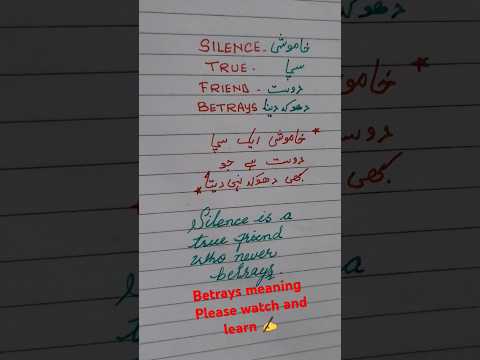 SILENCE. خاموشی
TRUE. سچا
FRIEND. دوست
BETRAYS دھوکہ دینا
* خاموشی ایک سچا
دوست ہے جو
کبھی دھوکہ نہیں دیتا *
Silence is a
true friend
who never
betrays.
Betrays meaning
Please watch and
learn ✍️
* خاموش
دوست
کبھی